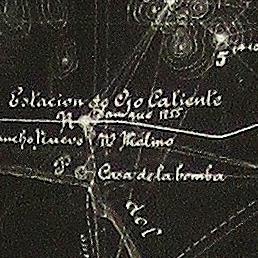 5
Estacion de Ojo Caliente
Tanque 1855
ncho Nuevo
Molino
Casa de la bomba
del